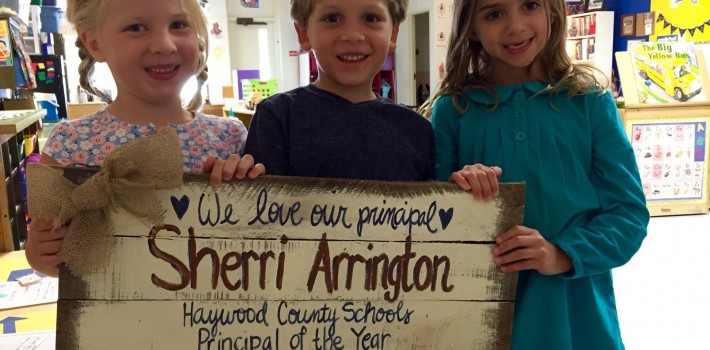 The Big
Yellow Bus
We love our principal
Sherri Arrington
Haywood County Schools
Principal of the Year